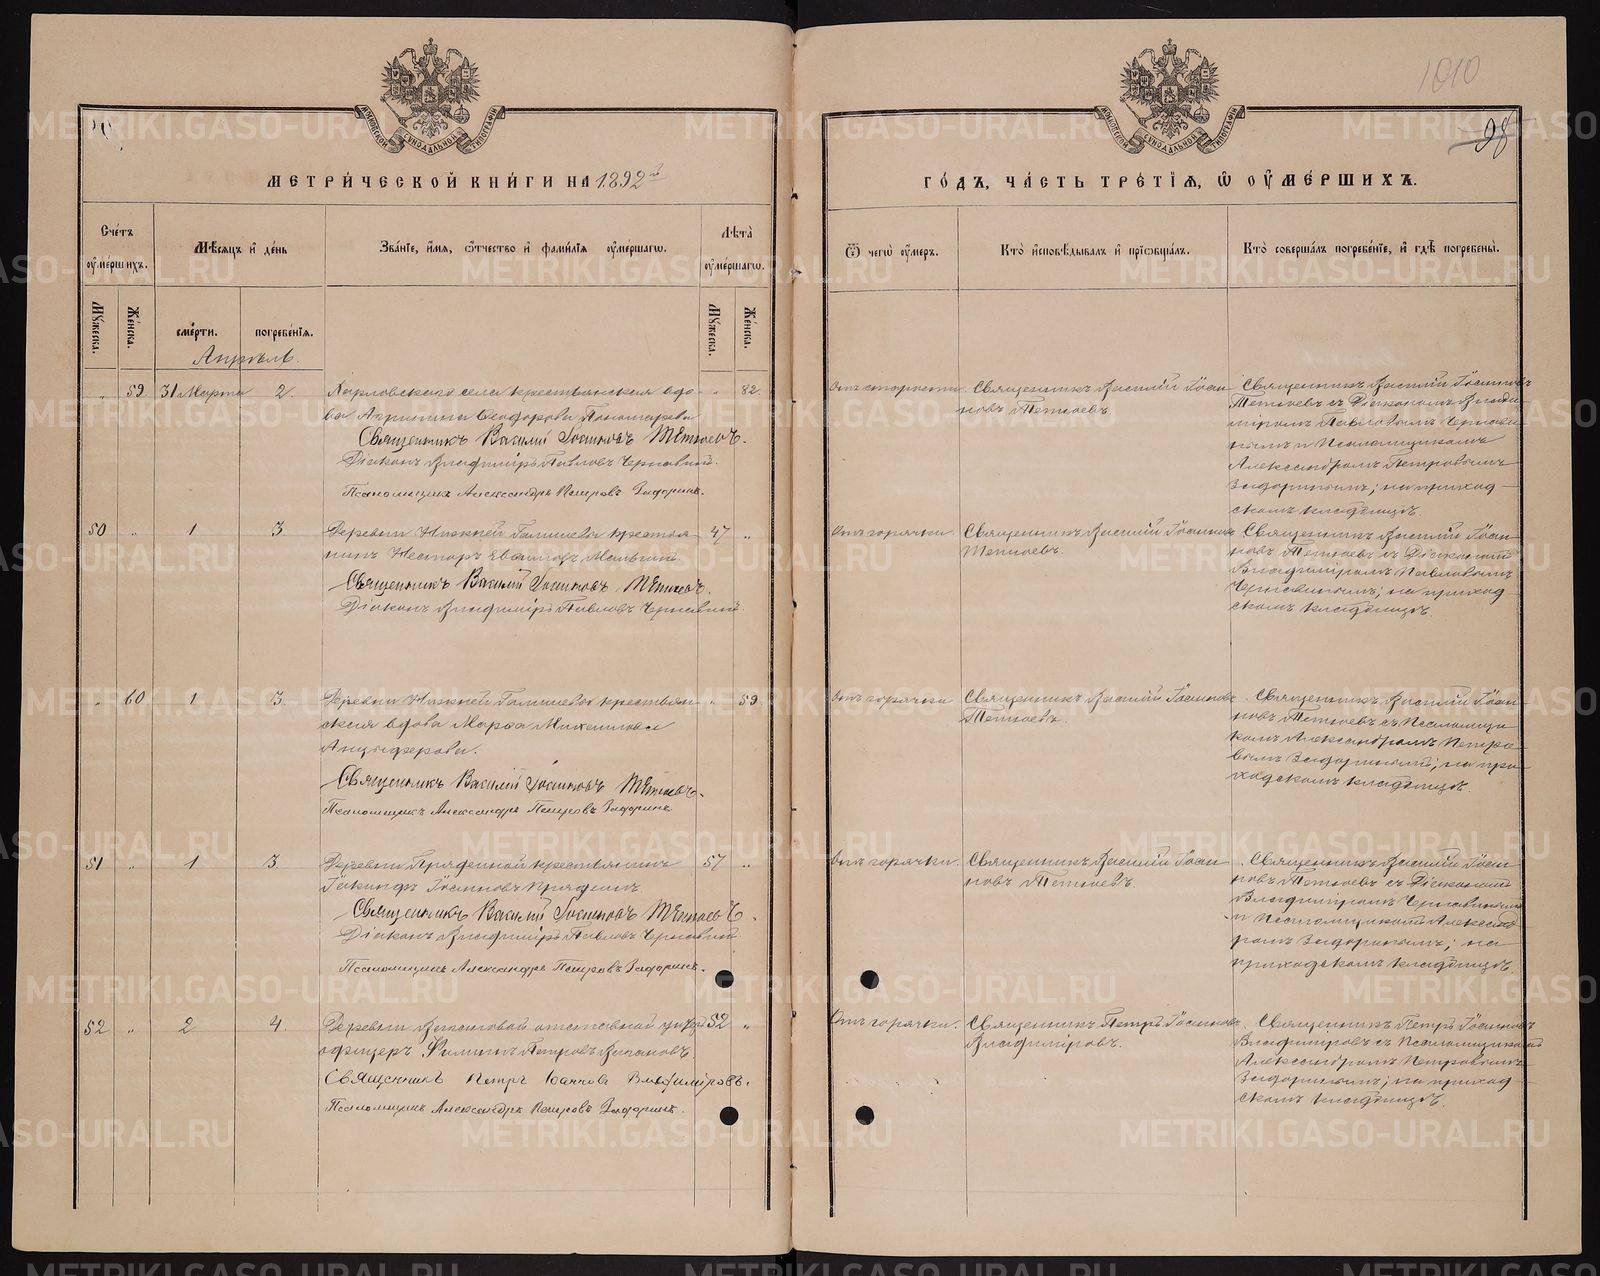 1010
98
МОСКОВСКОЙ СѴНОДАЛЬНОЙ ТИПОГРАФІИ
МОСКОВСКОЙ СѴНОДАЛЬНОЙ ТИПОГРАФІИ
МЕТРИ́ЧЕСКОЙ КНИ́ГИ НА 1892й
ГО́ДЪ, ЧА́СТЬ ТРЕ́ТІЯ, Ѽ ОУ҆МЕ́РШИХЪ.
Сче́тъ оу҆ме́ршихъ.
Мѣ́сяцъ и҆ де́нь
Зва́ніе, и҆́мя, ѻ҆́тчество и҆ фами́лія оу҆ме́ршагѡ.
Лѣ́та оу҆ме́ршагѡ.
Ѿ чегѡ̀ оу҆́меръ.
Кто̀ и҆сповѣ́дывалъ и҆ пріѡбща́лъ.
Кто̀ соверша́лъ погребе́ніе, и҆ гдѣ̀ погребены̀.
Мꙋ́жеска.
Же́нска.
сме́рти.
погребе́нія.
Мꙋ́жеска.
Же́нска.
Апрѣль.
„ 59 31 Марта 2.
Харловскаго села крестьянская вдо-
ва Агрипина Ѳеодорова Пономарева
Священникъ Василій Іоанновъ Тетюевъ.
Діаконъ Владиміръ Павловъ Чернавинъ.
Псаломщикъ Александръ Петровъ Задоринъ.
„ 82
Отъ старости.
Священникъ Василій Іоан-
новъ Тетюевъ.
Священникъ Василій Іоанновъ
Тетюевъ съ Діакономъ Влади-
миромъ Павловымъ Чернави-
нымъ и Псаломщикомъ
Александромъ Петровымъ
Задоринымъ; на приход-
скомъ кладбищѣ.
50 „ 1 3.
Деревни Нижней крестья-
нинъ
Священникъ Василій Іоанновъ Тетюевъ.
Діаконъ Владиміръ Павловъ Чернавинъ.
47 „
Отъ горячки.
Священникъ Василій Іоанновъ
Тетюевъ.
Священникъ Василій Іоан-
новъ Тетюевъ съ Діакономъ
Владиміромъ Павловымъ
Чернавинымъ; на приход-
скомъ кладбищѣ.
„ 60 1 3.
Деревни Нижней крестьян-
ская вдова Марѳа Михаилова
Анцыферова.
Священникъ Василій Іоанновъ Тетюевъ.
Псаломщикъ Александръ Петровъ Задоринъ.
„ 59
Отъ горячки.
Священникъ Василій Іоанновъ
Тетюевъ.
Священникъ Василій Іоан-
новъ Тетюевъ съ Псаломщи-
комъ Александромъ Петро-
вымъ Задоринымъ; на при-
ходскомъ кладбищѣ.
51 „ 1 3.
Деревни Пряденной крестьянинъ
Іакинфъ Іоанновъ Прядеинъ.
Священникъ Василій Іоанновъ Тетюевъ.
Діаконъ Владиміръ Павловъ Чернавинъ.
Псаломщикъ Александръ Петровъ Задоринъ.
57 „
Отъ горячки.
Священникъ Василій Іоан-
новъ Тетюевъ.
Священникъ Василій Іоан-
новъ Тетюевъ съ Діакономъ
Владиміромъ Чернавинымъ
и Псаломщикомъ Александ-
ромъ Задоринымъ; на
приходскомъ кладбищѣ.
52 „ 2 4.
Деревни отставной унтеръ
офицеръ Филиппъ Петровъ
Священникъ Петръ Іоанновъ Владиміровъ.
Псаломщикъ Александръ Петровъ Задоринъ.
52 „
Отъ горячки.
Священникъ Петръ Іоанновъ
Владиміровъ.
Священникъ Петръ Іоанновъ
Владиміровъ съ Псаломщикомъ
Александромъ Петровымъ
Задоринымъ; на приход-
скомъ кладбищѣ.
METRIKI.GASO-URAL.RU